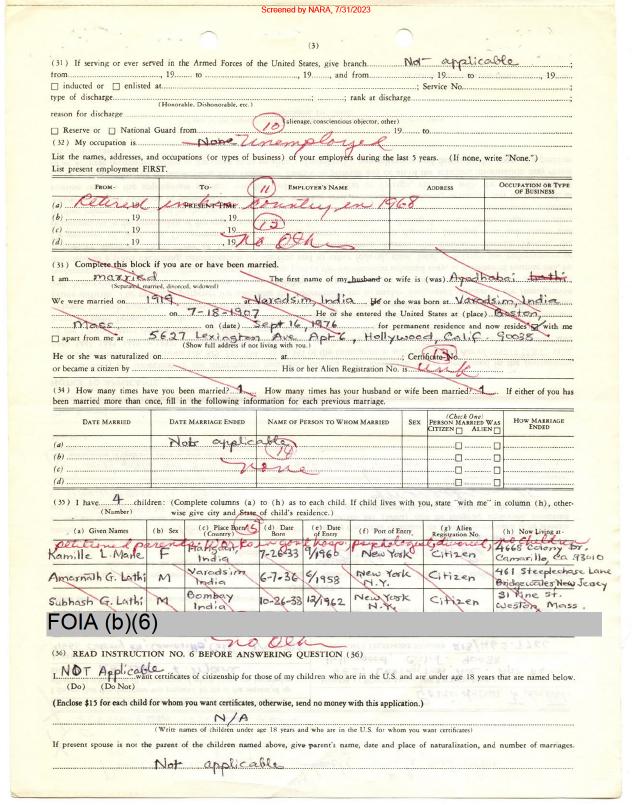 Screened by NARA, 7/31/2023
(3)
(31) If serving or ever served in the Armed Forces of the United States, give branch Not applicable ;
from , 19 to , 19 , and from , 19 to , 19 ;
☐ inducted or ☐ enlisted at ; Service No. ;
type of discharge ; rank at discharge ;
(Honorable, Dishonorable, etc.)
reason for discharge
(alienage, conscientious objector, other)
10
☐ Reserve or ☐ National Guard from 19 to
(32) My occupation is None Unemployed
List the names, addresses, and occupations (or types of business) of your employers during the last 5 years. (If none, write "None.")
List present employment FIRST.
FROM- TO- 11 EMPLOYER'S NAME ADDRESS OCCUPATION OR TYPE OF BUSINESS
(a) PRESENT TIME Retired in country en 1968
(b) , 19 , 19
(c) , 19 , 19 13
(d) , 19 , 19 no Oth
(33) Complete this block if you are or have been married.
I am married The first name of my husband or wife is (was) Ayodhabai Lathi
(Separated, married, divorced, widowed)
We were married on 1919, at Varodsim, India He or she was born at Varodsim, India
on 7-18-1907 He or she entered the United States at (place) Boston,
Mass on (date) Sept 16, 1976 for permanent residence and now resides ☑ with me
☐ apart from me at 5627 Lexington Ave Apt 6, Hollywood, Calif. 90038
(Show full address if not living with you.)
He or she was naturalized on at ; Certificate No. 13
or became a citizen by His or her Alien Registration No. is unk
(34) How many times have you been married? 1 How many times has your husband or wife been married? 1 If either of you has
been married more than once, fill in the following information for each previous marriage.
DATE MARRIED DATE MARRIAGE ENDED NAME OF PERSON TO WHOM MARRIED SEX (Check One) PERSON MARRIED WAS CITIZEN ☐ ALIEN ☐ HOW MARRIAGE ENDED
(a) Not applicable ☐ ☐
(b) 14 ☐ ☐
(c) none ☐ ☐
(d) ☐ ☐
(35) I have 4 children: (Complete columns (a) to (h) as to each child. If child lives with you, state "with me" in column (h), other-
(Number) wise give city and State of child's residence.)
(a) Given Names (b) Sex (c) Place Born (Country) 15 (d) Date Born (e) Date of Entry (f) Port of Entry (g) Alien Registration No. (h) Now Living at-
petitioned parents psychologist, divorced, no children
Kamille L. Mane F India 7-26-33 9/1960 New York Citizen 4668 Colony Dr. Camarillo, Ca. 93010
Amarnath G. Lathi M Varodsim India 6-7-36 6/1958 New York N.Y. Citizen 461 Steeplechase Lane Bridgewater, New Jersey
Subhash G. Lathi M Bombay India 10-26-38 12/1962 New York N.Y. Citizen 31 Pine st. Weston, Mass.
FOIA (b)(6)
no Oth
(36) READ INSTRUCTION NO. 6 BEFORE ANSWERING QUESTION (36)
I NOT Applicable want certificates of citizenship for those of my children who are in the U.S. and are under age 18 years that are named below.
(Do) (Do Not)
(Enclose $15 for each child for whom you want certificates, otherwise, send no money with this application.)
N/A
(Write names of children under age 18 years and who are in the U.S. for whom you want certificates)
If present spouse is not the parent of the children named above, give parent's name, date and place of naturalization, and number of marriages.
Not applicable